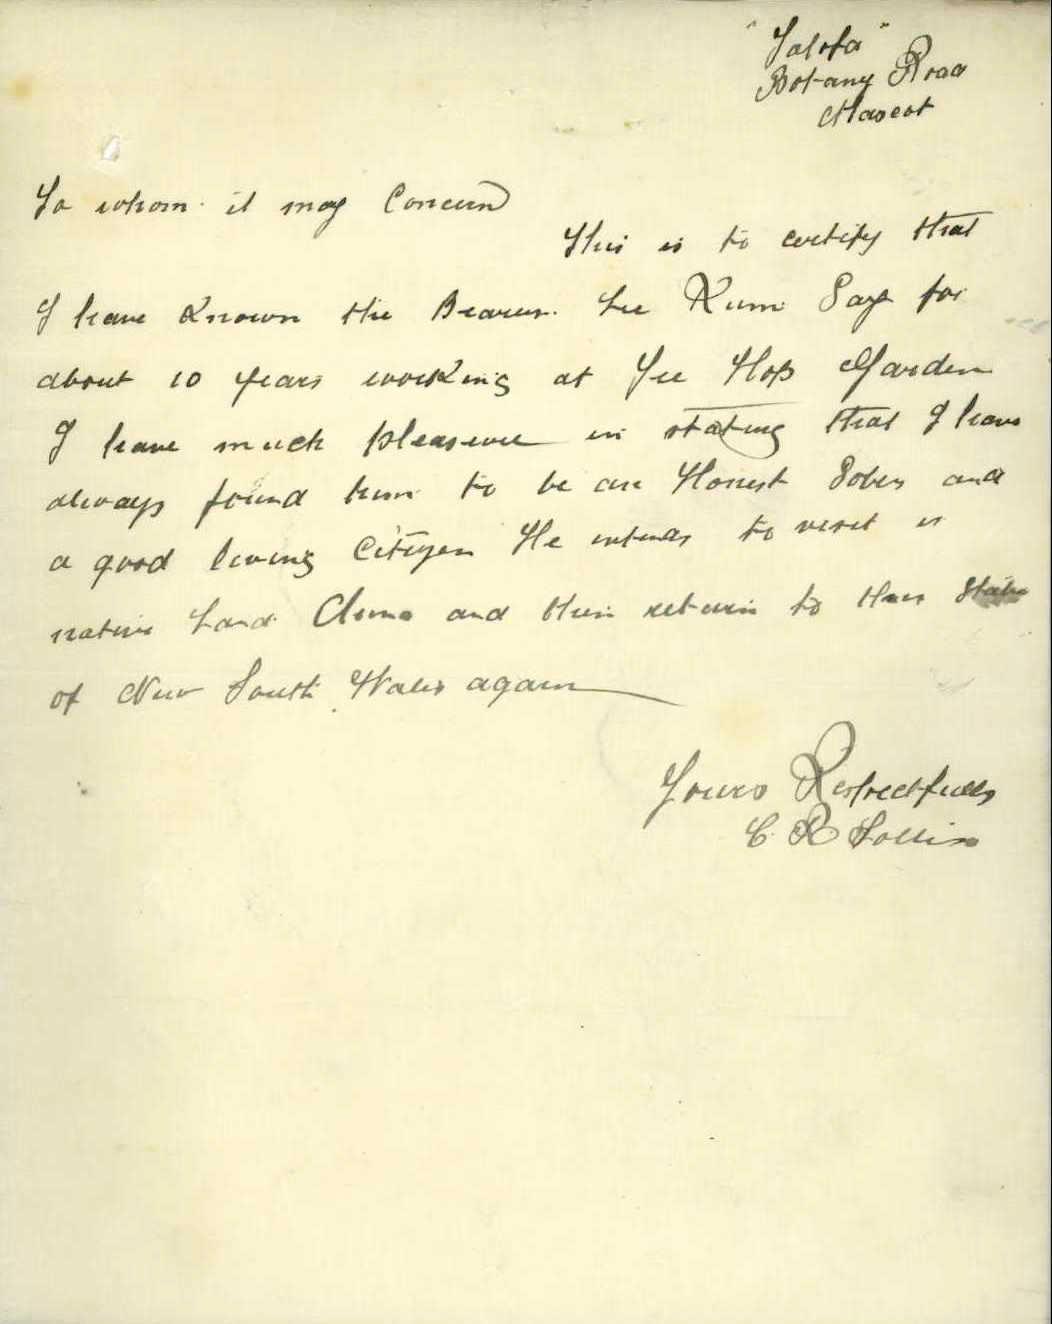 "Talofa"
Botany Road
Mascot
To whom it may Concern
This is to certify that
I have Known the Bearer. Lee Kum Say for
about 10 years working at Yee Hop Garden
I have much pleasure in stating that I have
always found him to be an Honest Sober and
a good living Citizen He intends to visit is
native Land China and then return to this State
of New South Wales again
Yours Respectfully
C. R